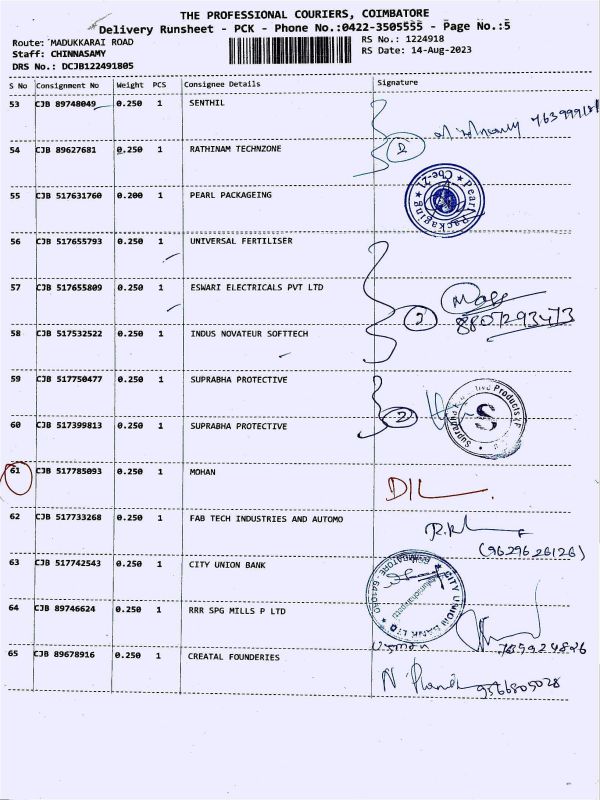 THE PROFESSIONAL COURIERS, COIMBATORE
Delivery Runsheet - PCK - Phone No.:0422-3505555 - Page No.:5
Route: MADUKKARAI ROAD RS No.: 1224918
Staff: CHINNASAMY RS Date: 14-Aug-2023
DRS No.: DCJB122491805
S No Consignment No Weight PCS Consignee Details Signature
53 CJB 89748049 0.250 1 SENTHIL
54 CJB 89627681 0.250 1 RATHINAM TECHNZONE
55 CJB 517631760 0.200 1 PEARL PACKAGEING
Pearl Packaging Cbe-21
56 CJB 517655793 0.250 1 UNIVERSAL FERTILISER
57 CJB 517655809 0.250 1 ESWARI ELECTRICALS PVT LTD
2
8807293473
58 CJB 517532522 0.250 1 INDUS NOVATEUR SOFTTECH
59 CJB 517750477 0.250 1 SUPRABHA PROTECTIVE
2
S
60 CJB 517399813 0.250 1 SUPRABHA PROTECTIVE
61 CJB 517785093 0.250 1 MOHAN
62 CJB 517733268 0.250 1 FAB TECH INDUSTRIES AND AUTOMO
(9629626126)
63 CJB 517742543 0.250 1 CITY UNION BANK
CITY UNION BANK LTD
64 CJB 89746624 0.250 1 RRR SPG MILLS P LTD
65 CJB 89678916 0.250 1 CREATAL FOUNDERIES
9566805028